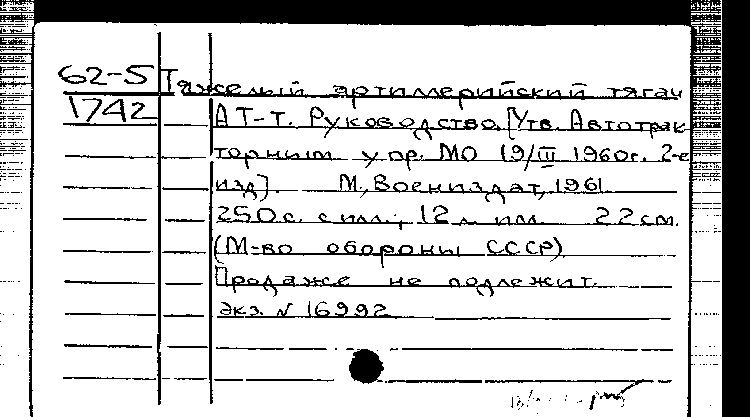 62-5 Тяжелый артиллерийский тягач
1742 АТ-Т. Руководство. [Утв. Автотрак-
торным упр. МО 19/III 1960г. 2-е
изд]. М., Воениздат, 1961
250с. с илл.; 12 л илл. 22см.
(М-во обороны СССР)
Продаже не подлежит.
Экз. № 16992